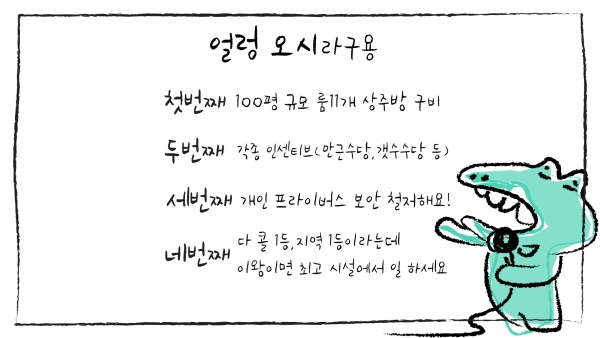 얼렁 오시라구용
첫번째 100평 규모 룸11개 상주방 구비
두번째 각종 인센티브(만근수당,갯수수당 등)
세번째 개인 프라이버스 보안 철저해요!
네번째 다 콜 1등,지역 1등이라는데
이왕이면 최고 시설에서 일 하세요